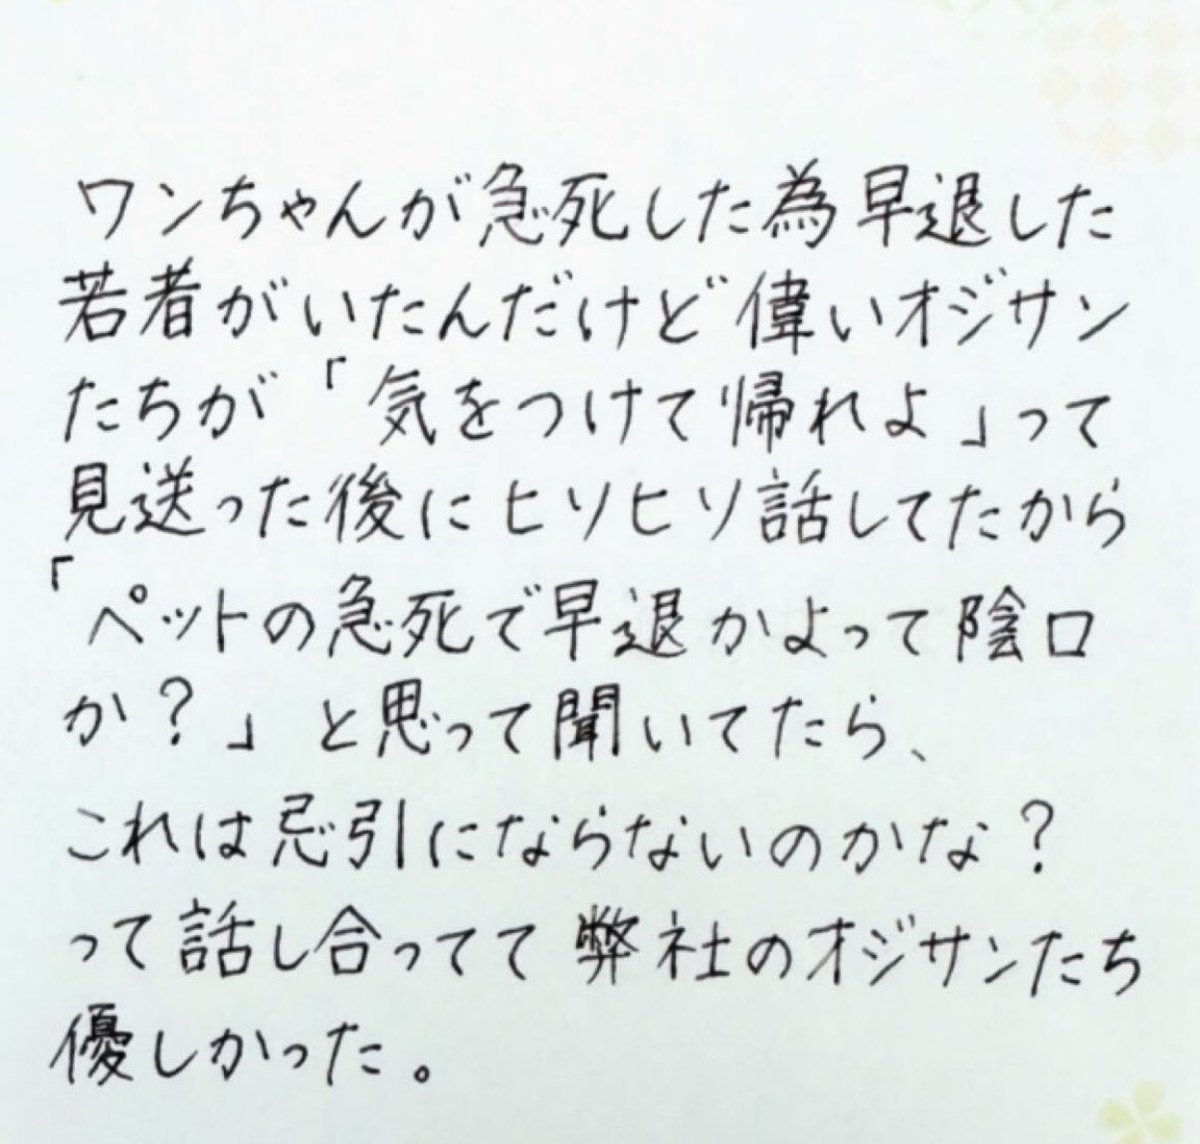 ワンちゃんが急死した為早退した
若者がいたんだけど偉いオジサン
たちが「気をつけて帰れよ」って
見送った後にヒソヒソ話してたから
「ペットの急死で早退かよって陰口
か?」と思って聞いてたら、
これは忌引にならないのかな?
って話し合ってて弊社のオジサンたち
優しかった。